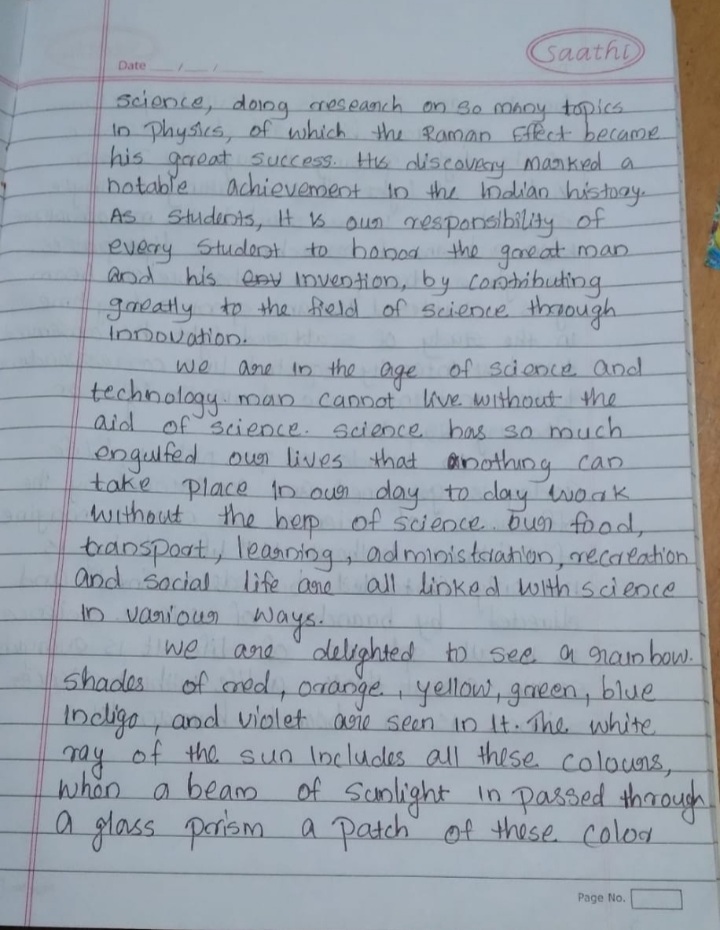 saathi
Date __/__/____
science, doing research on so many topics
in Physics, of which the Raman Effect became
his great success. His discovery marked a
notable achievement in the Indian history.
As students, It is our responsibility of
every student to honor the great man
and his invention, by contributing
greatly to the field of science through
innovation.
We are in the age of science and
technology. man cannot live without the
aid of science. science has so much
engulfed our lives that anothing can
take place in our day to day work
without the help of science. Our food,
transport, learning, administration, recreation
and social life are all linked with science
in various ways.
We are delighted to see a rainbow.
Shades of red, orange, yellow, green, blue
Indigo, and violet are seen in it. The white
ray of the sun includes all these colours,
when a beam of sunlight in passed through
a glass prism a patch of these color
Page No.